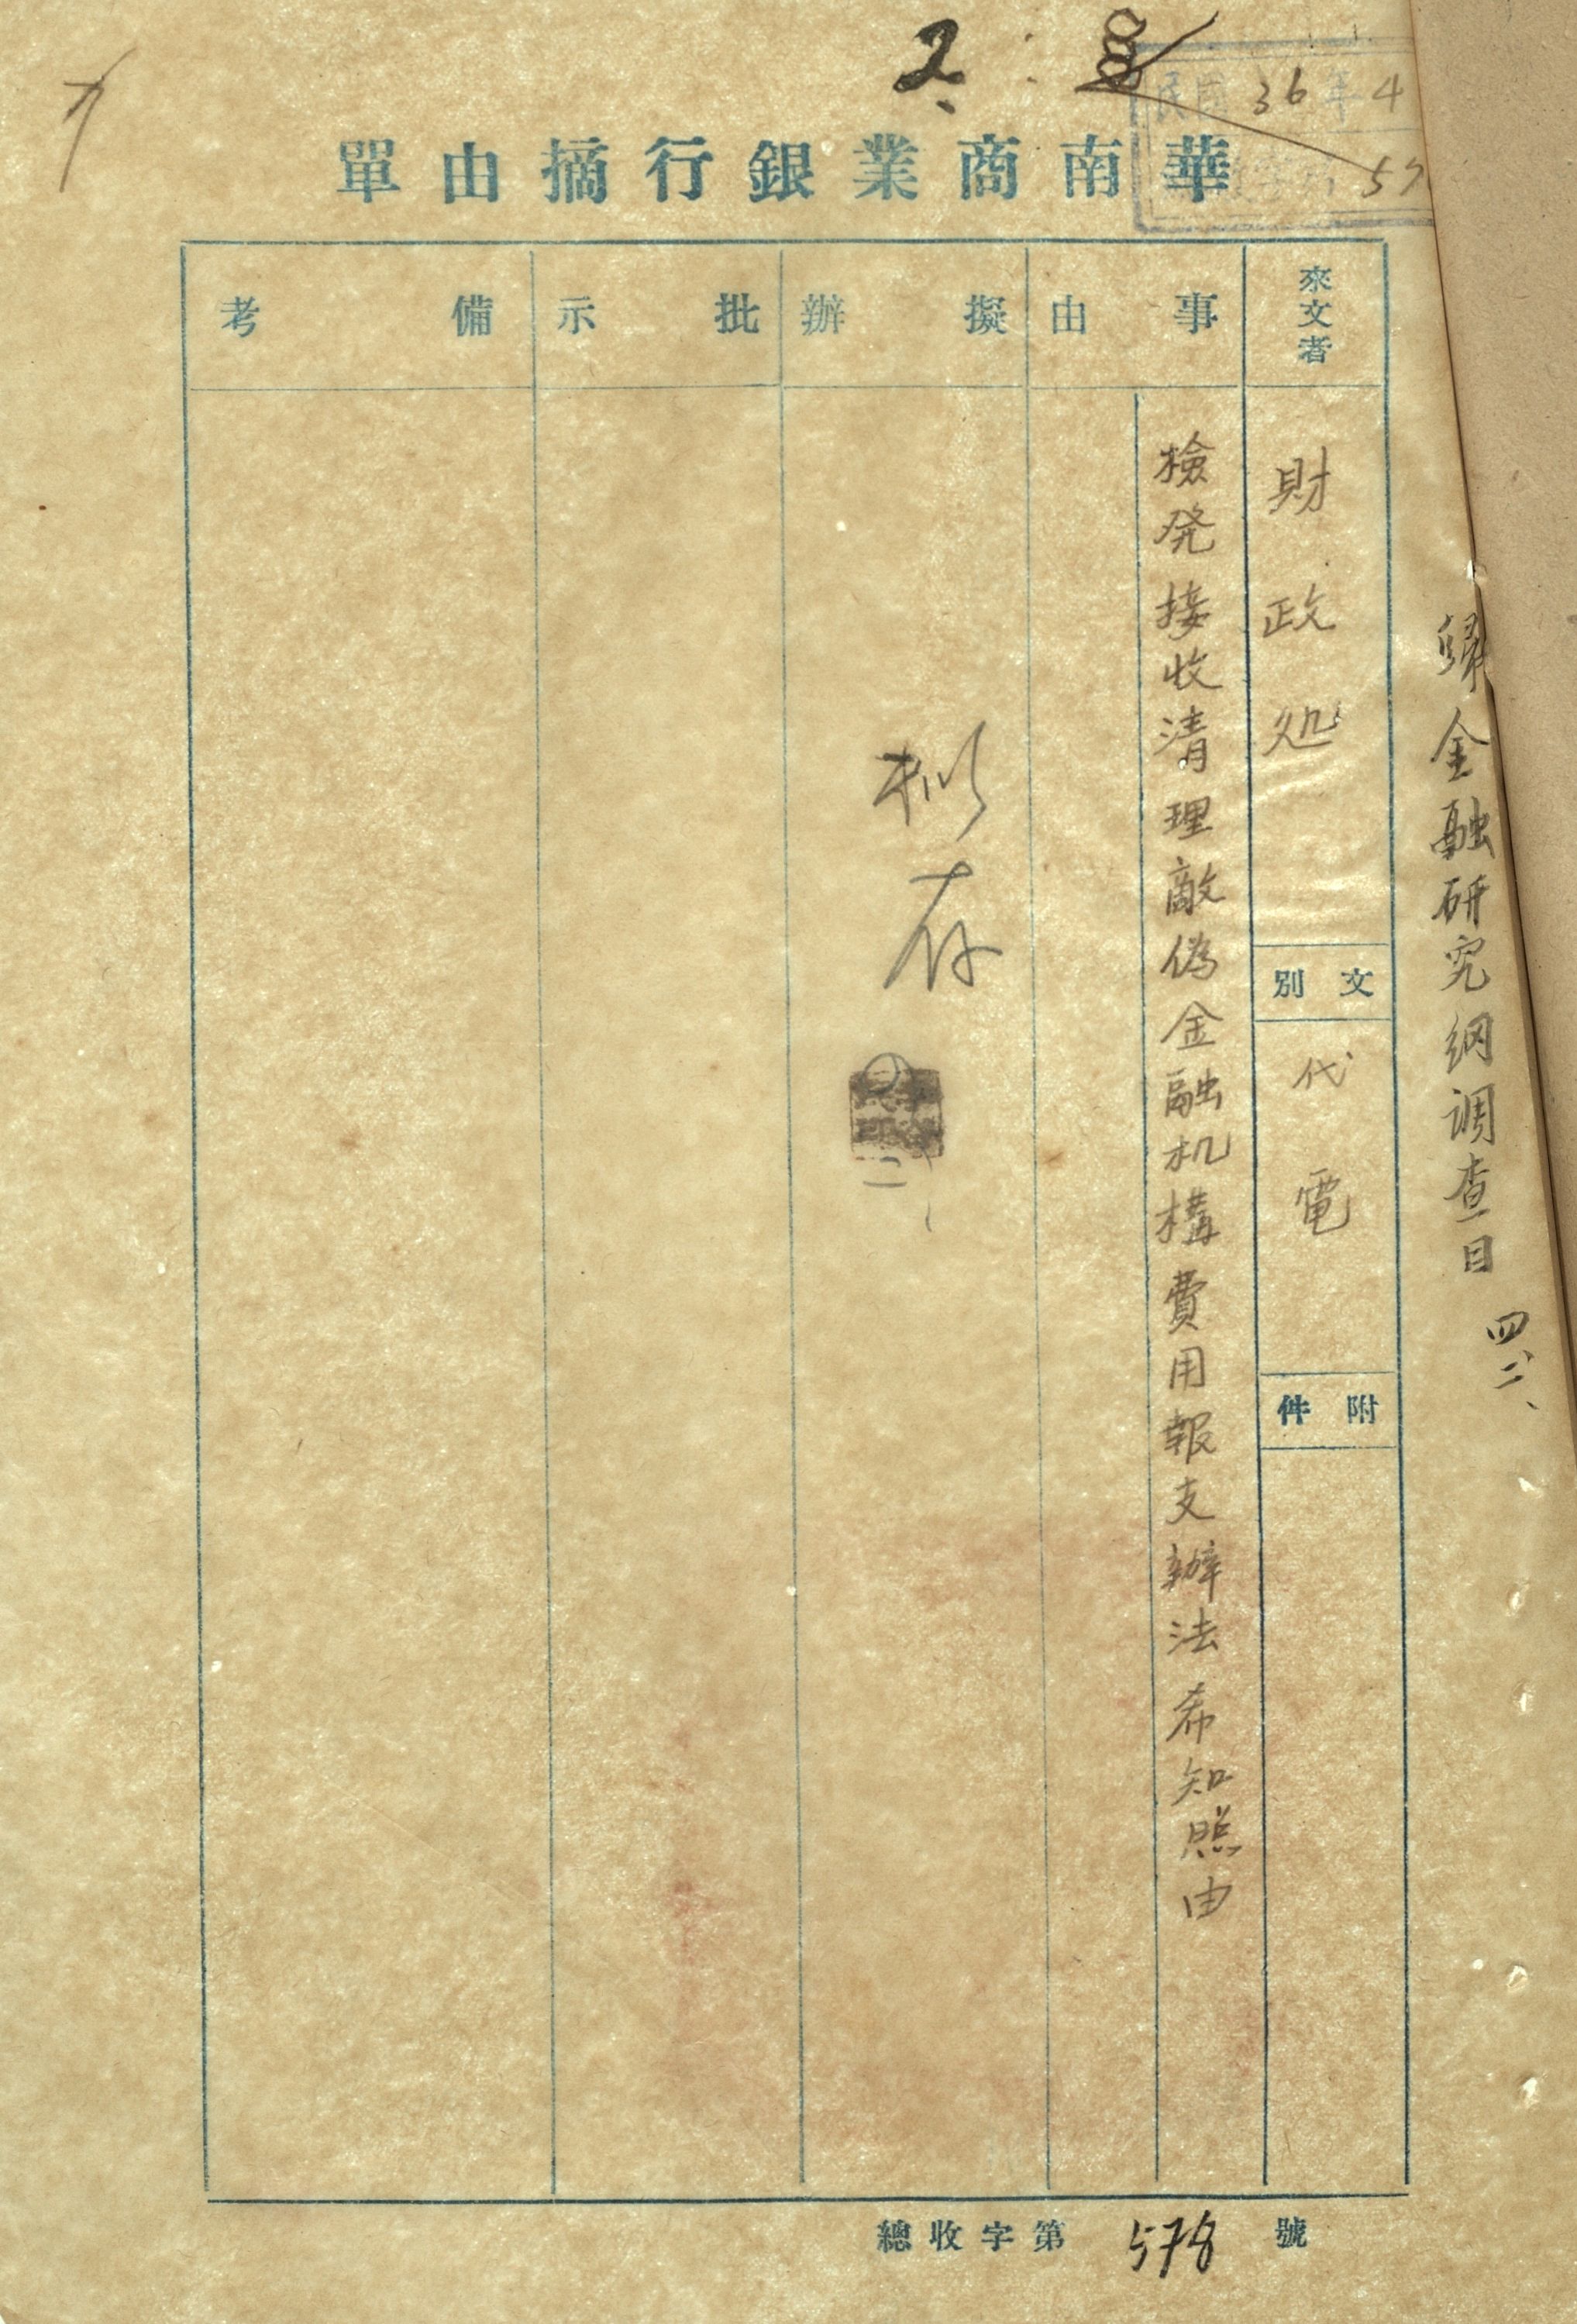 2、
民國36年4
57
華南商業銀行摘由單
來文者
財政処
文別
代電
附件
事由
檢発接收清理敵偽金融机構費用報支辦法希知照由
擬辦
拟存
批示
備考
歸金融研究網调查目
四、二、
總收字第578號